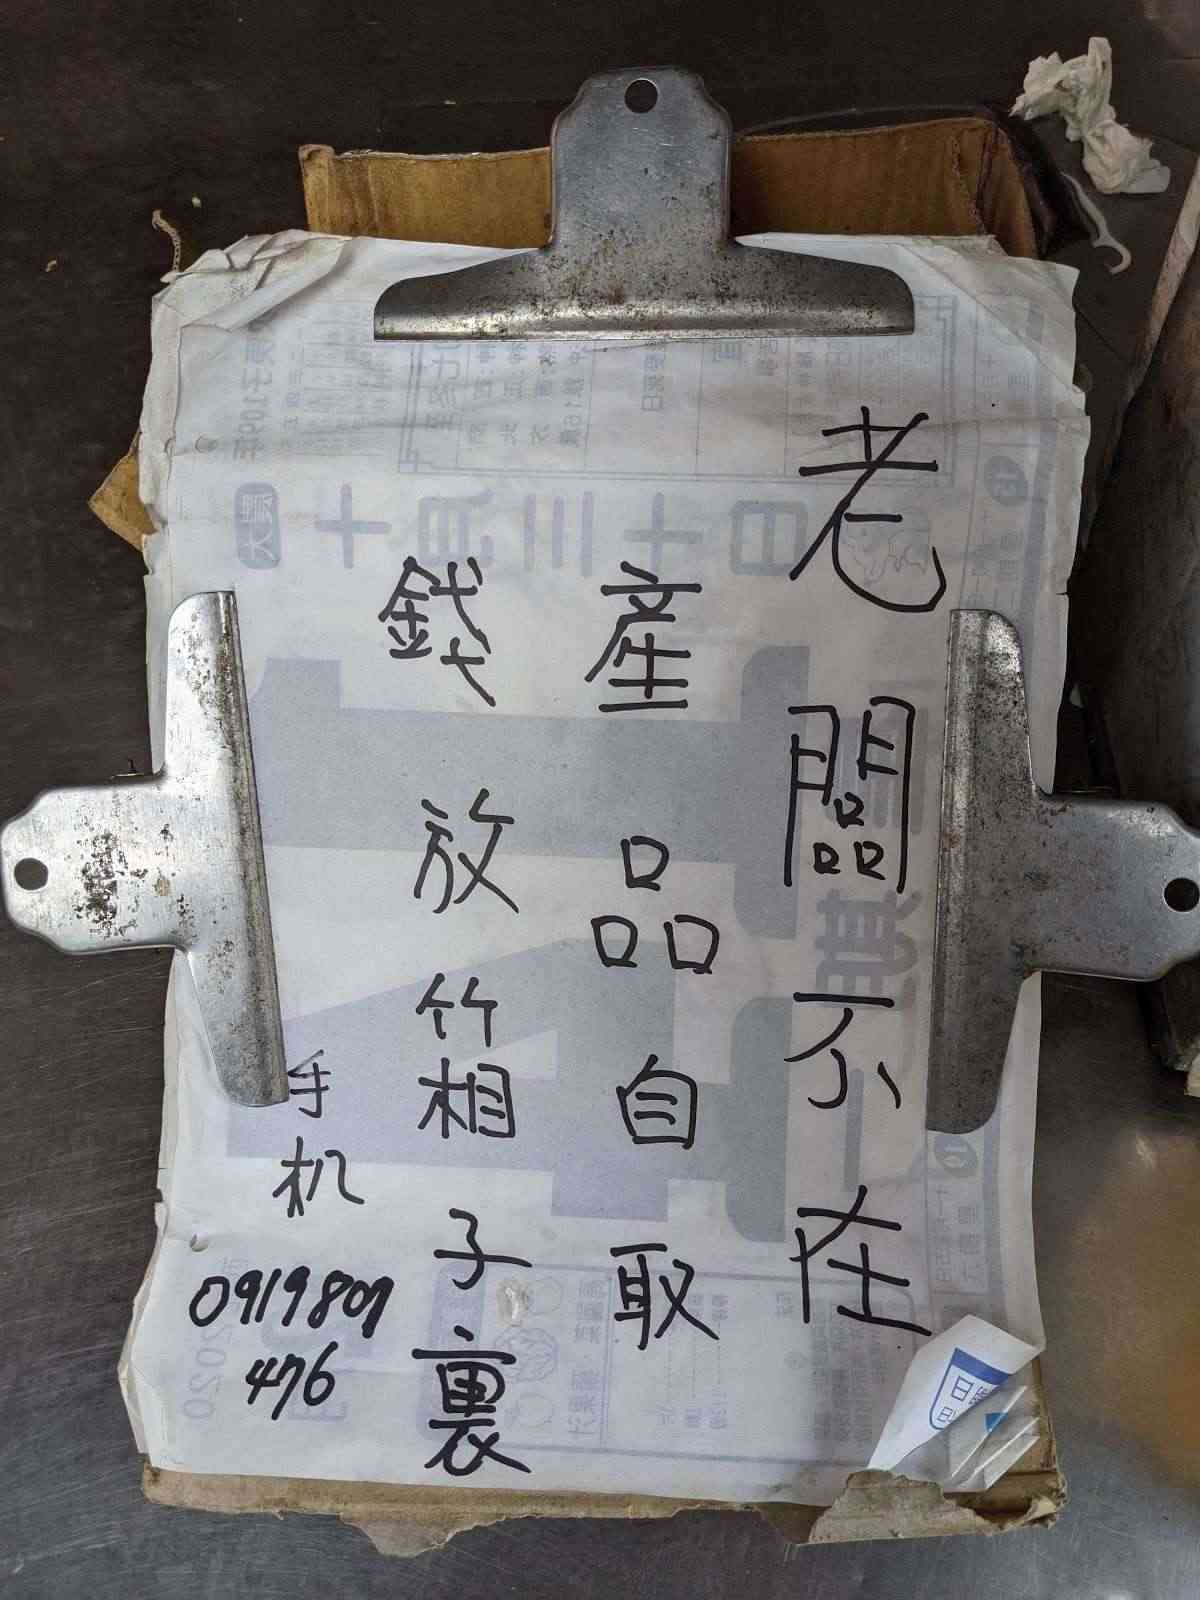 老闆不在
產品自取
錢放箱子裏
手机
0919807
476